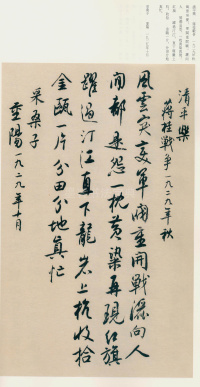 清平樂
蔣桂戰爭 一九二九年秋
風雲突变軍阀重開戰洒向人
间都是怨一枕黄粱再現红旗
躍過汀江直下龍岩上杭收拾
金瓯一片分田分地真忙
采桑子
重陽 一九二九年十月